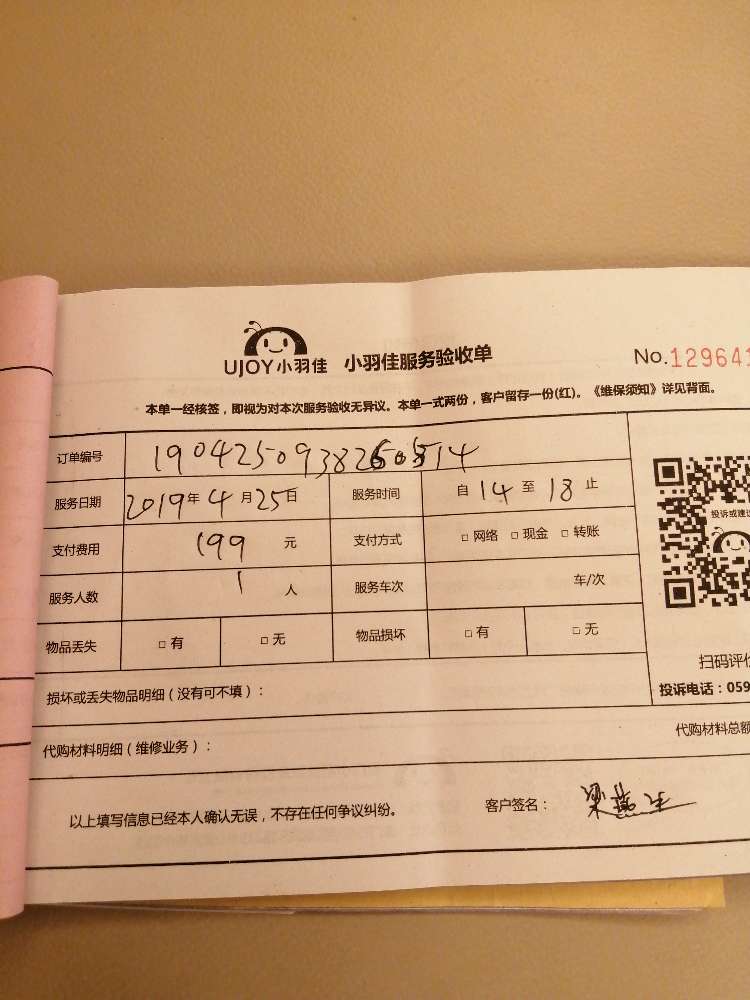 UJOY小羽佳 小羽佳服务验收单 No.129641
本单一经核签，即视为对本次服务验收无异议。本单一式两份，客户留存一份(红)。《维保须知》详见背面。
订单编号
服务日期 2019年4月25日 服务时间 自 14 至 18 止
支付费用 199 元 支付方式 □ 网络 □ 现金 □ 转账
服务人数 1 人 服务车次 车/次
物品丢失 □ 有 □ 无 物品损坏 □ 有 □ 无
投诉或建议
扫码评价
投诉电话：059
损坏或丢失物品明细（没有可不填）：
代购材料明细（维修业务）： 代购材料总额
以上填写信息已经本人确认无误，不存在任何争议纠纷。 客户签名：